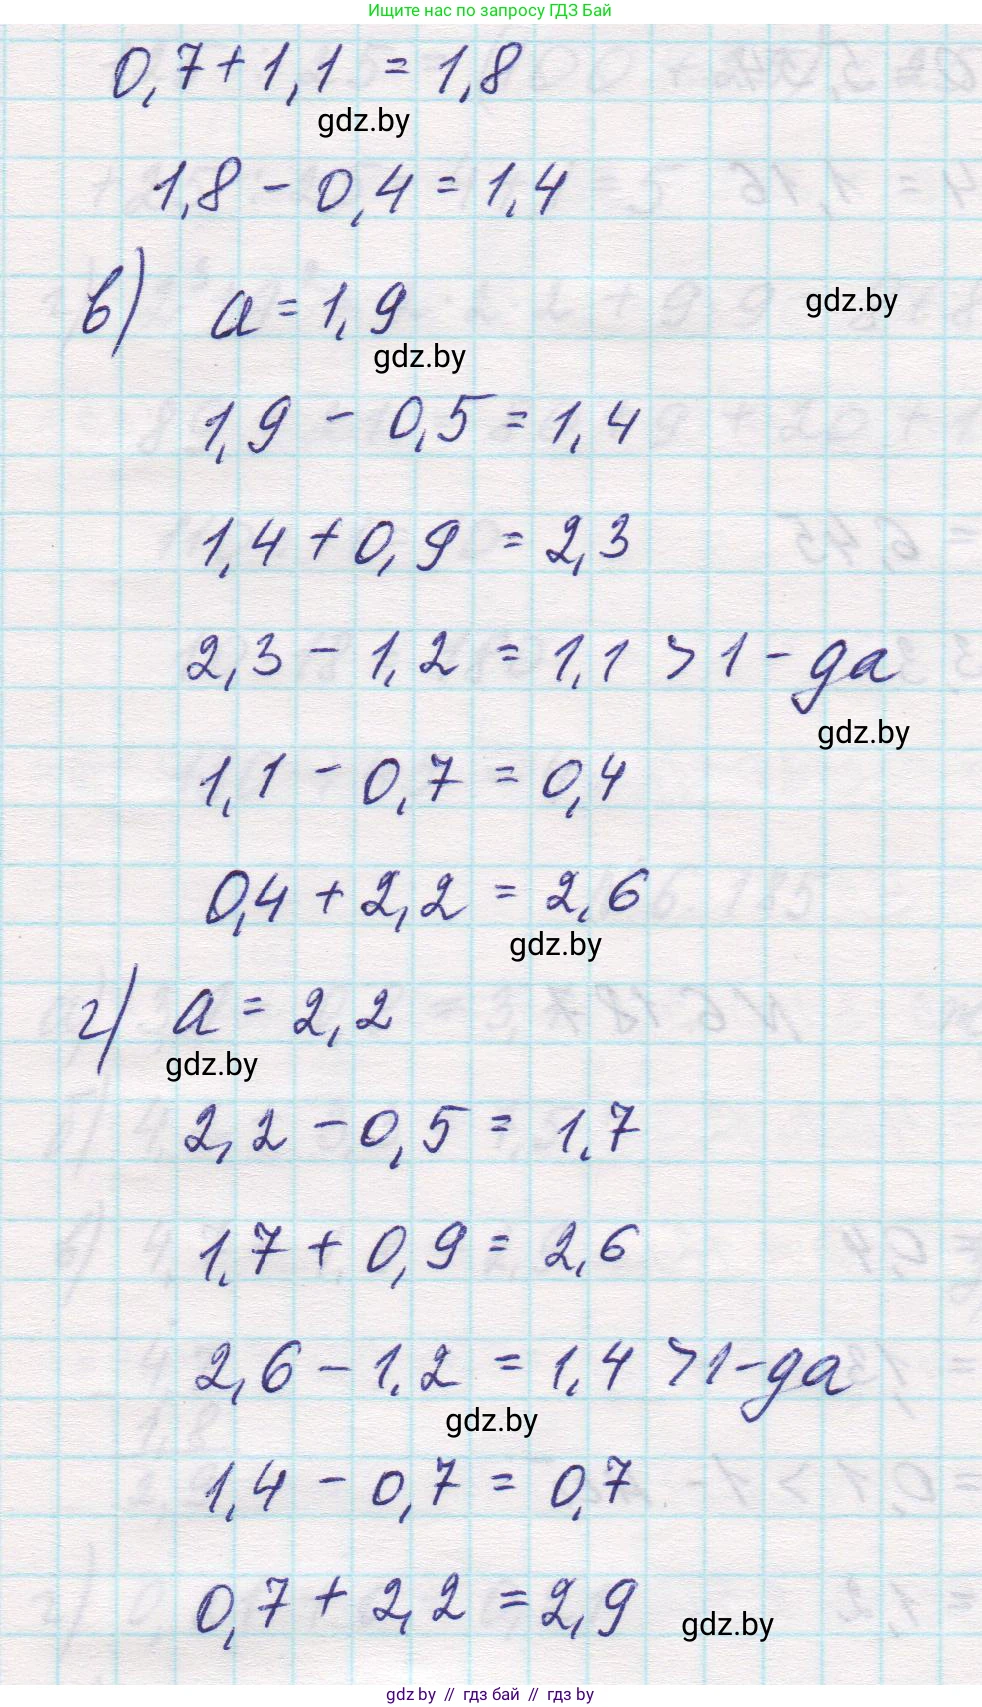 Ищите нас по запросу ГДЗ Бай
0,7 + 1,1 = 1,8
gdz.by
1,8 - 0,4 = 1,4
в) a = 1,9
gdz.by
gdz.by
1,9 - 0,5 = 1,4
1,4 + 0,9 = 2,3
2,3 - 1,2 = 1,1 > 1 - да
gdz.by
1,1 - 0,7 = 0,4
0,4 + 2,2 = 2,6
gdz.by
г) a = 2,2
gdz.by
2,2 - 0,5 = 1,7
1,7 + 0,9 = 2,6
2,6 - 1,2 = 1,4 > 1 - да
gdz.by
1,4 - 0,7 = 0,7
0,7 + 2,2 = 2,9
gdz.by
gdz by // гдз бай // gdz by